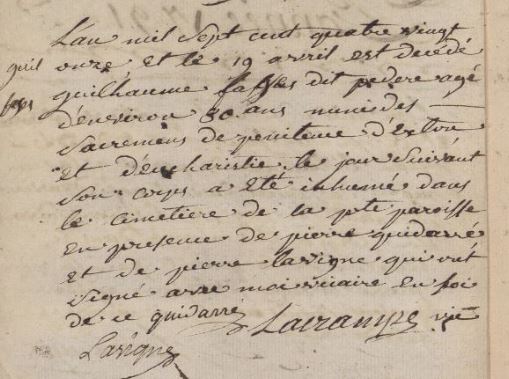 L'an mil sept cent quatre vingt
onze et le 19 avril est decédé
guil
guilhaume fasses dit pedere agé
d'environ 50 ans muni des
sacremens de penitence d'Extre
et d'eucharistie le jour suivant
son corps a eté inhumé dans
le cimetière de la pte paroisse
en presence de pierre guidarré
et de pierre lavigne qui ont
signé avec moi vicaire en foi
de ce guidarré Lacrampe vic
Lavigne